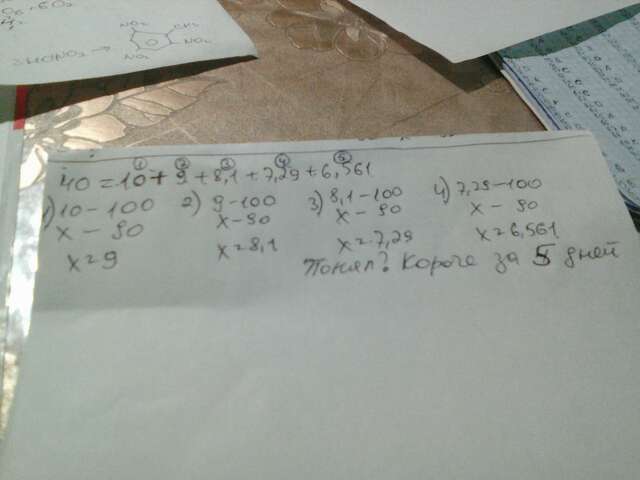 O₆ + 6O₂
3HONO₂ → NO₂ CH₃ NO₂ NO₂
① ② ③ ④ ⑤
40 = 10 + 9 + 8,1 + 7,29 + 6,561
1) 10 - 100 2) 9 - 100 3) 8,1 - 100 4) 7,29 - 100
x - 90 x - 90 x - 90 x - 90
x = 9 x = 8,1 x = 7,29 x = 6,561
Понял? Короче за 5 дней